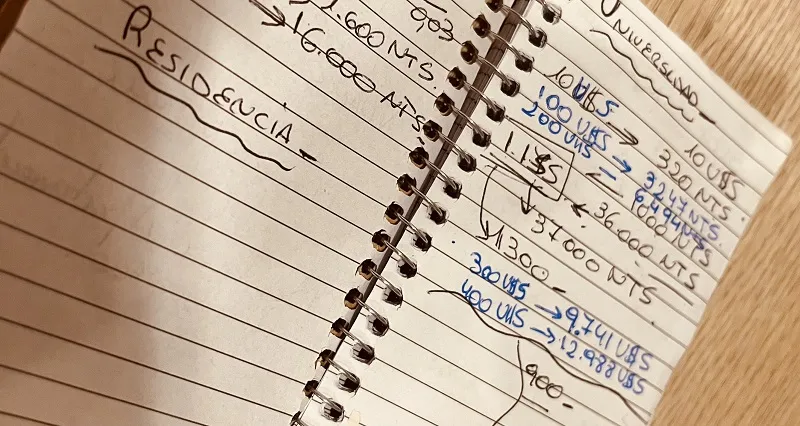 0,03
1.600 NTS.
→ 16.000 NTS.
RESIDENCIA
UNIVERSIDAD
10 U$S
10 U$S → 320 NTS
100 U$S → 3247 NTS.
200 U$S → 6.494 NTS
1000 NTS
36.000 NTS
37.000 NTS
1300
300 U$S → 9.741 U$S
400 U$S → 12.988 U$S
900